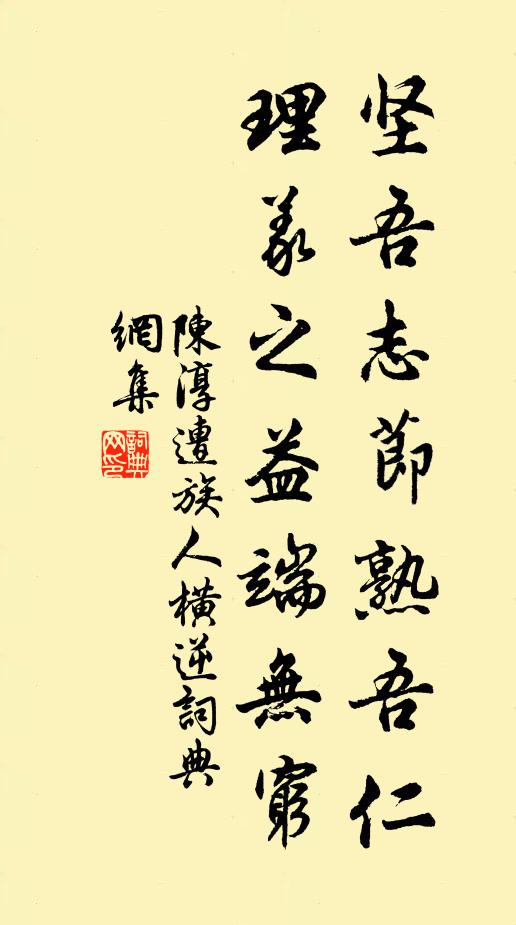 坚吾志節熟吾仁
理义之益端無窮
陳淳遭族人橫逆詞典
網集
詞典网印